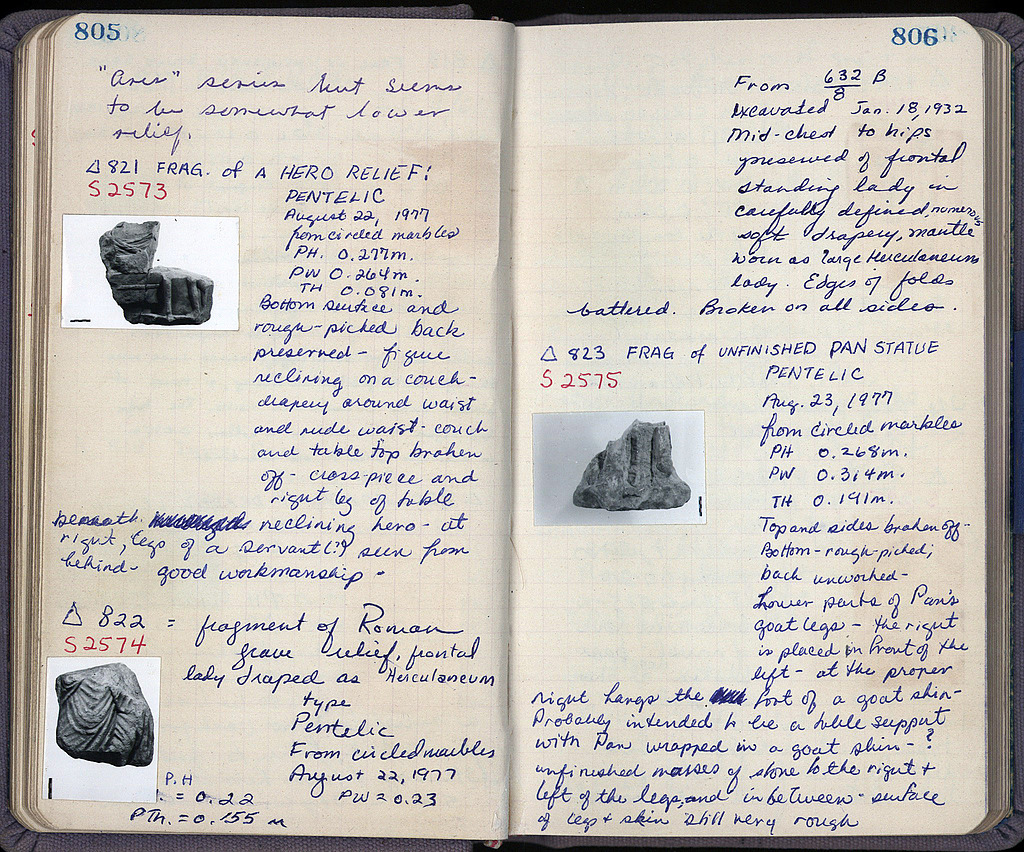 805
"Ares" series but seems
to be somewhat lower
relief.
Δ 821 FRAG. of A HERO RELIEF:
S 2573
PENTELIC
August 22, 1977
from circled marbles
PH. 0.277m.
PW 0.264m.
TH 0.081m.
Bottom surface and
rough-picked back
preserved - figure
reclining on a couch -
drapery around waist
and nude waist - couch
and table top broken
off - cross-piece and
right leg of table
beneath reclining hero - at
right, legs of a servant(?) seen from
behind - good workmanship -
Δ 822 = fragment of Roman
S 2574
grave relief, frontal
lady draped as Herculaneum
type
Pentelic
From circled marbles
August 22, 1977
P.H
. = 0.22
PW = 0.23
PTh. = 0.155 m
806
From 632/8 B
Excavated Jan. 18, 1932
Mid-chest to hips
preserved of frontal
standing lady in
carefully defined, numerous
soft drapery, mantle
worn as large Herculaneum
lady. Edges of folds
battered. Broken on all sides.
Δ 823 FRAG of UNFINISHED PAN STATUE
S 2575
PENTELIC
Aug. 23, 1977
from circled marbles
PH 0.268m.
PW 0.314m.
TH 0.191m.
Top and sides broken off -
Bottom - rough-picked;
back unworked -
Lower parts of Pan's
goat legs - the right
is placed in front of the
left - at the proper
right hangs the foot of a goat skin -
Probably intended to be a table support
with Pan wrapped in a goat skin - ?
unfinished masses of stone to the right +
left of the legs, and in between - surface
of legs + skin still very rough